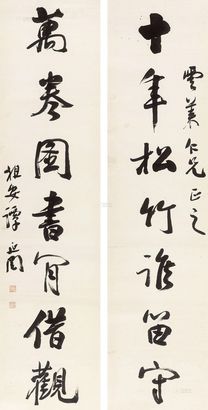 雲仁兄正之
十年松竹誰留守
萬卷圖書肎借觀
祖安譚延闓